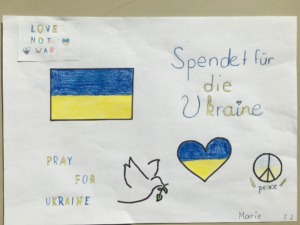 LOVE
NOT
WAR
Spendet für
die
Ukraine
PRAY
FOR
UKRAINE
peace
Marie